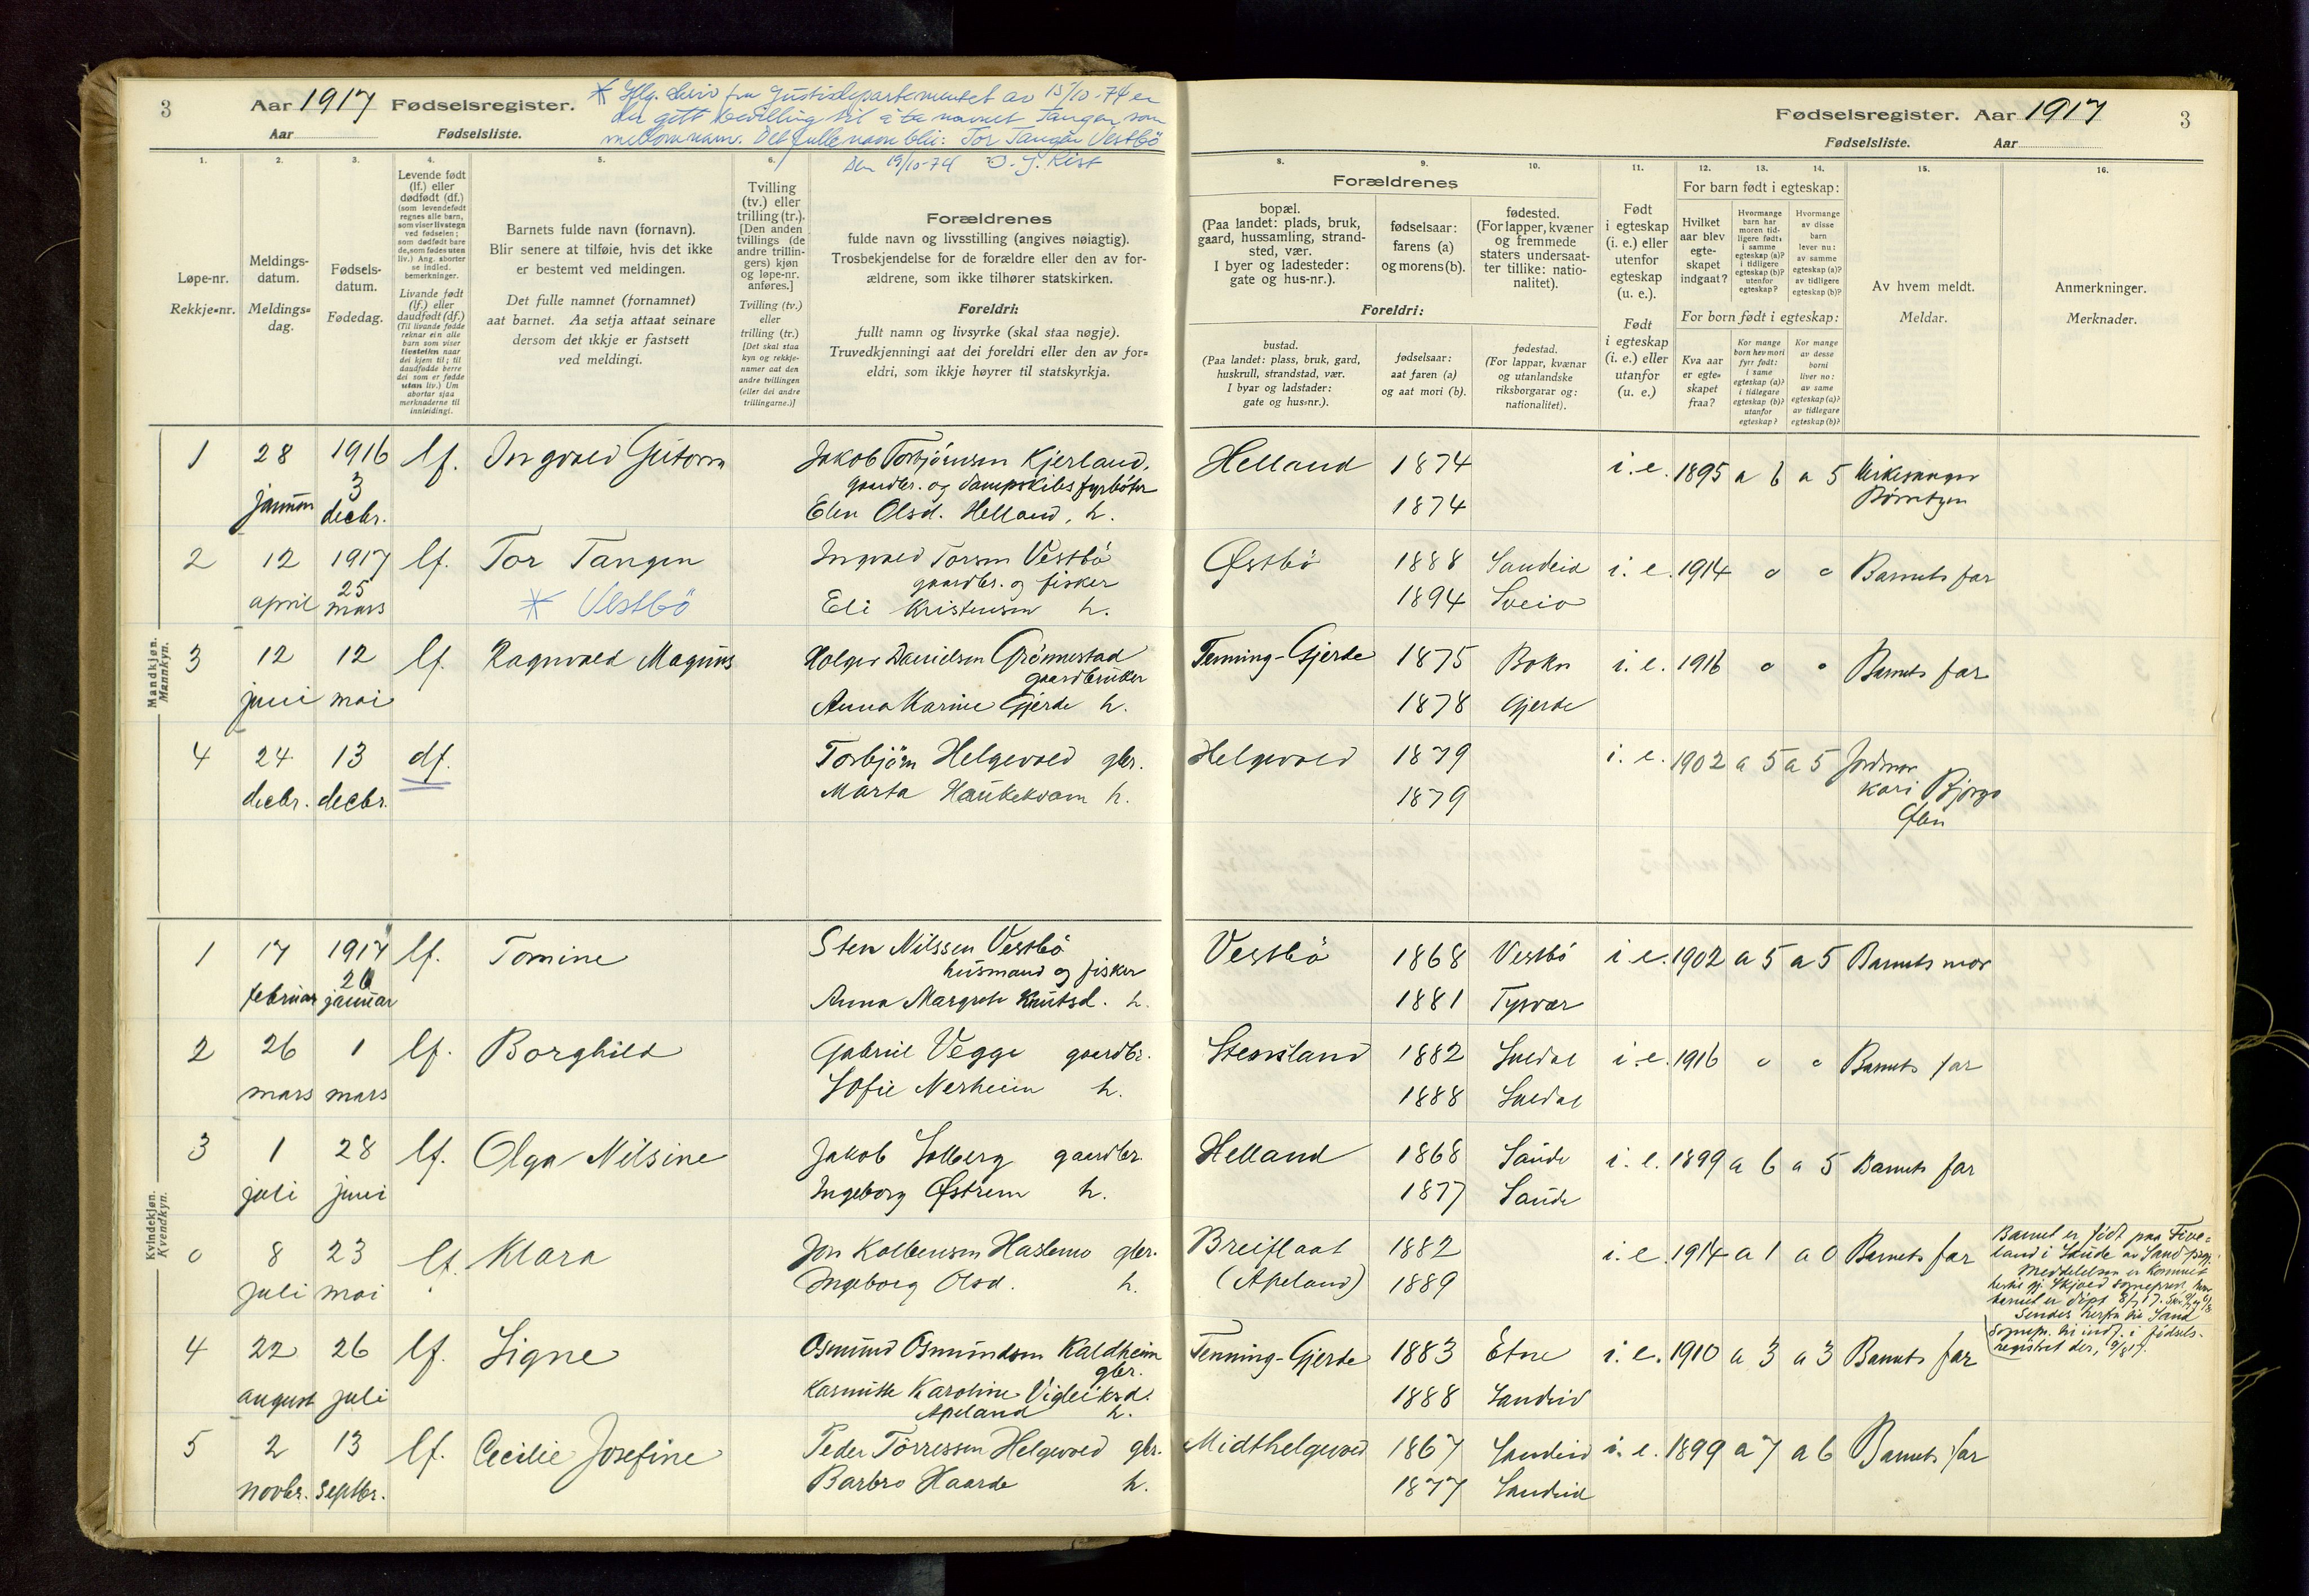 3
Aar 1917 Fødselsregister.
Aar
Fødselsliste.
* Iflg. skriv fra Justisdepartementet av 15/10-74 er
der gitt bevilling til å ta navnet Tangen som
mellomnavn. Det fulle navn blir: Tor Tangen Vestbö
Den 19/10-74
1. 2. 3. 4. 5. 6.
Løpe-nr.
Rekkje-nr.
Meldings-
datum.
Meldings-
dag.
Fødsels-
datum.
Fødedag.
Levende født
(lf.) eller
dødfødt (df.)
(som levendefødt
regnes alle barn,
som viser livstegn
ved fødselen;
som dødfødt bare
de, som fødes uten
liv.) Ang. aborter
se indled.
bemerkninger.
Livande født
(lf.) eller
daudfødt (df.)
(Til livande fødde
reknar ein alle
barn som viser
livsteikn naar
dei kjem til; til
daudfødde berre
dei som er fødde
utan liv.) Um
abortar sjaa
merknaderne til
innleidingi.
Barnets fulde navn (fornavn).
Blir senere at tilføie, hvis det ikke
er bestemt ved meldingen.
Det fulle namnet (fornamnet)
aat barnet. Aa setja attaat seinare
dersom det ikkje er fastsett
ved meldingi.
Tvilling
(tv.) eller
trilling (tr.).
[Den anden
tvillings (de
andre trillin-
gers) kjøn
og løpe-nr.
anføres.]
Tvilling (tv.)
eller
trilling (tr.)
[Det skal staa
kyn og rekkje-
numer aat den
andre tvillingen
(eller dei andre
trillingarne.)]
Forældrenes
fulde navn og livsstilling (angives nøiagtig).
Trosbekjendelse for de forældre eller den av for-
ældrene, som ikke tilhører statskirken.
Foreldri:
fullt namn og livsyrke (skal staa nøgje).
Truvedkjenningi aat dei foreldri eller den av for-
eldri, som ikkje høyrer til statskyrkja.
Mandkjøn.
Mannkyn.
1 28 1916 lf. Ingvald Gutorm Jakob Torbjörnsen Kjerland,
3 gaardbr. og dampskibsfyrböter
januar decbr. Elen Olsd. Helland, h.
2 12 1917 lf. Tor Tangen Ingvald Torsen Vestbö
25 gaardbr. og fisker
april mars * Vestbö Eli Kristensen h.
3 12 12 lf. Ragnvald Magnus Holger Danielsen Grönnestad
gaardbruker
juni mai Anna Karine Gjerde h.
4 24 13 df. Torbjörn Helgevold gbr.
decbr. decbr. Marta Haukekvam h.
Kvindekjøn.
Kvendkyn.
1 17 1917 lf. Tomine Sten Nilssen Vestbö
husmand og fisker
februar januar Anna Margrete Knutsd. h.
2 26 1 lf. Borghild Gabriel Vegge gaardbr.
mars mars Sofie Nerheim h.
3 1 28 lf. Olga Nilsine Jakob Solberg gaardbr.
juli juni Ingeborg Østrem h.
0 8 23 lf. Klara Jon Kolbensen Haslemo gbr.
juli mai Ingeborg Olsd. h.
4 22 26 lf. Signe Osmund Osmundsen Kaldheim
gbr.
august juli Karoline Vigleiksd.
Apeland h.
5 2 13 lf. Cecilie Josefine Peder Törressen Helgevold gbr.
novbr. septbr. Barbro Haarde h.
Fødselsregister. Aar 1917
3
Fødselsliste.
Aar
8. 9. 10. 11. 12. 13. 14. 15. 16.
Forældrenes
bopæl.
(Paa landet: plads, bruk,
gaard, hussamling, strand-
sted, vær.
I byer og ladesteder:
gate og hus-nr.).
fødselsaar:
farens (a)
og morens (b).
fødested.
(For lapper, kvæner
og fremmede
staters undersaat-
ter tillike: natio-
nalitet).
Foreldri:
bustad.
(Paa landet: plass, bruk, gard,
huskrull, strandstad, vær.
I byar og ladstader:
gate og hus-nr.).
fødselsaar:
aat faren (a)
og aat mori (b).
fødestad.
(For lappar, kvænar
og utanlandske
riksborgarar og:
nationalitet).
Født
i egteskap
(i. e.) eller
utenfor
egteskap
(u. e.).
Født
i egteskap
(i. e.) eller
utanfor
(u. e.)
For barn født i egteskap:
Hvilket
aar blev
egte-
skapet
indgaat?
Hvormange
barn har
moren tid-
ligere født:
i samme
egteskap (a)?
i tidligere
egteskap (b)?
utenfor
egteskap?
Hvormange
av disse
barn
lever nu:
av samme
egteskap (a)?
av tidligere
egteskap (b)?
For born født i egteskap:
Kva aar
er egte-
skapet
fraa?
Kor mange
born hev mori
fyr født:
i same
egteskap (a)?
i tidlegare
egteskap (b)?
utanfor
egteskap?
Kor mange
av desse
borni
liver no:
av same
egteskap (a)?
av tidlegare
egteskap (b)?
Av hvem meldt.
Meldar.
Anmerkninger.
Merknader.
Helland 1874 i. e. 1895 a 6 a 5 Kirkesanger
1874
Østbö 1888 Sandeid i. e. 1914 0 0 Barnets far
1894 Sveio
Tenning-Gjerde 1875 Bokn i. e. 1916 0 0 Barnets far
1878 Gjerde
Helgevold 1879 i. e. 1902 a 5 a 5 Jordmor
1879 Kari Bjørgo
Ølen
Vestbö 1868 Vestbö i. e. 1902 a 5 a 5 Barnets mor
1881 Tysvær
Stensland 1882 Suldal i. e. 1916 0 0 Barnets far
1888 Suldal
Helland 1868 Saude i. e. 1899 a 6 a 5 Barnets far
1877 Saude
Breiflaat 1882 i. e. 1914 a 1 a 0 Barnets far
(Apeland) 1889
Barnet er født paa Five-
land i Saude av Sand prgj.
Meddelelsen er kommet
barnet er döpt 8/7 17.
Sendes herfra til Sand
sognepr. til indf. i fødsels-
registret der,
Tenning-Gjerde 1883 Etne i. e. 1910 a 3 a 3 Barnets far
1888 Sandeid
Midthelgevold 1867 Sandeid i. e. 1899 a 7 a 6 Barnets far
1877 Sandeid